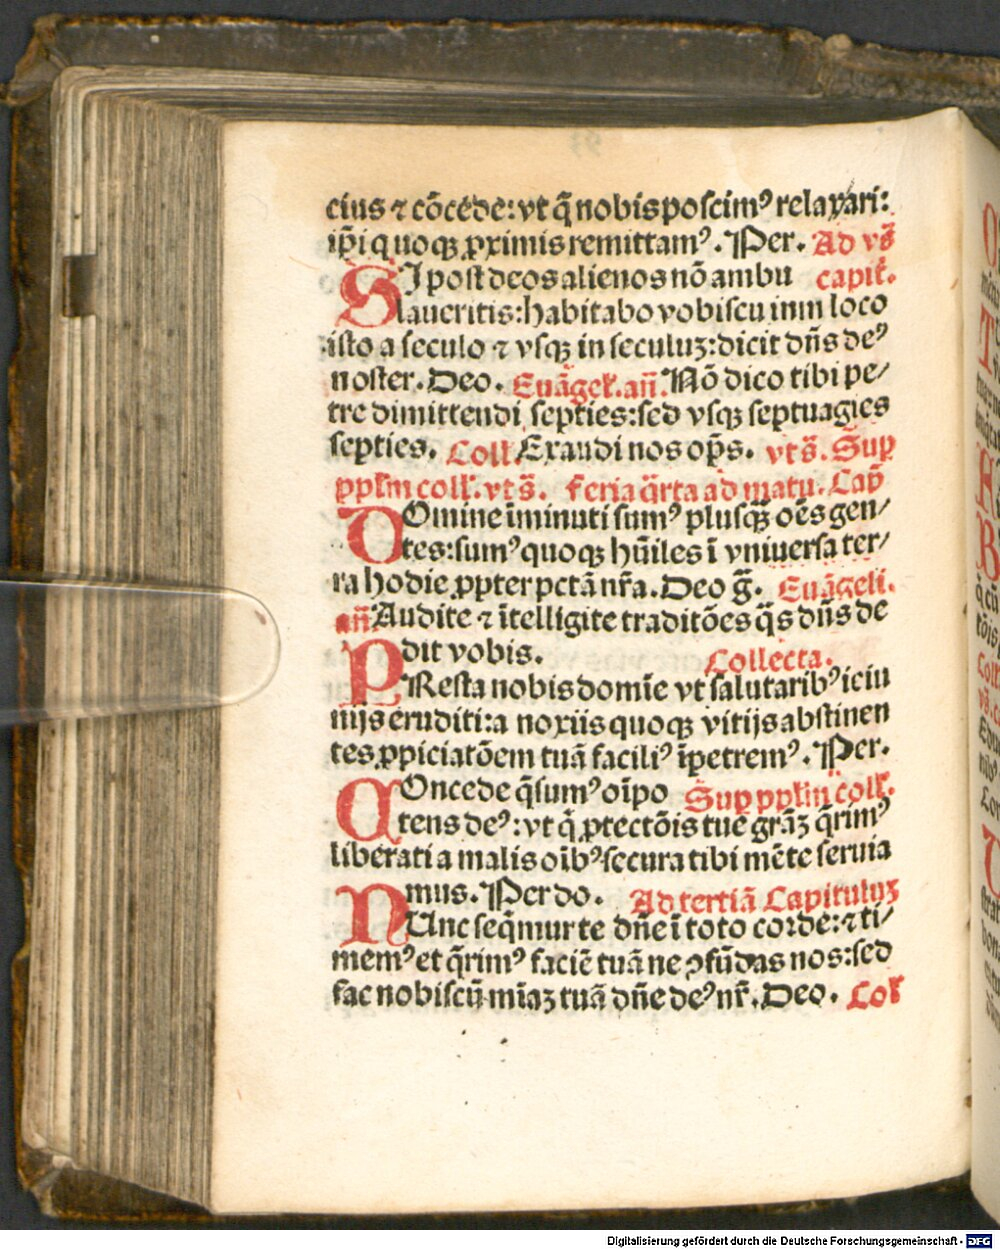 cius ⁊ cõcede: vt q̃ nobis poscimꝰ relaxari:
ip̃i quoqꝫ ꝓximis remittamꝰ. Per. Ad vs̃
SI post deos alienos nõ ambu capit̃.
laueritis: habitabo vobiscũ in in loco
isto a seculo ⁊ vsqꝫ in seculuꝫ: dicit dñs deꝰ
noster. Deo. Euãgel̃. añ. Nõ dico tibi pe⸗
tre dimittendi septies: sed vsqꝫ septuagies
septies. Coll̃. Exaudi nos op̃s. vt s̃. Sup
ppl̃m coll̃. vt s̃. feria q̃rta ad matu. Cap̃
DOmine ĩminuti sumꝰ plusq̃ꝫ oẽs gen⸗
tes: sumꝰ quoqꝫ hũiles ĩ vniuersa ter⸗
ra hodie ꝓpter pctã nr̃a. Deo g̃. Euãgeli.
añ Audite ⁊ ĩtelligite traditões q̃s dñs de
dit vobis. Collecta.
PResta nobis domĩe vt salutaribꝰ ieiu
nijs eruditi: a noxiis quoqꝫ vitijs abstinen
tes ꝓpiciatõem tuã faciliꝰ ĩpetremꝰ. Per.
COncede q̃sumꝰ oĩpo Sup ppl̃m coll̃.
tens deꝰ: vt q̃ ꝓtectõis tue grãꝫ q̃rimꝰ
liberati a malis oĩbꝰ secura tibi mẽte seruia
mus. Per do. Ad tertiã Capituluꝫ
NUnc seq̃mur te dñe ĩ toto corde: ⁊ ti⸗
memꝰ et q̃rimꝰ faciẽ tuã ne ꝯfũdas nos: sed
fac nobiscũ mĩaꝫ tuã dñe deꝰ nr̃. Deo. Col̃
Digitalisierung gefördert durch die Deutsche Forschungsgemeinschaft - DFG